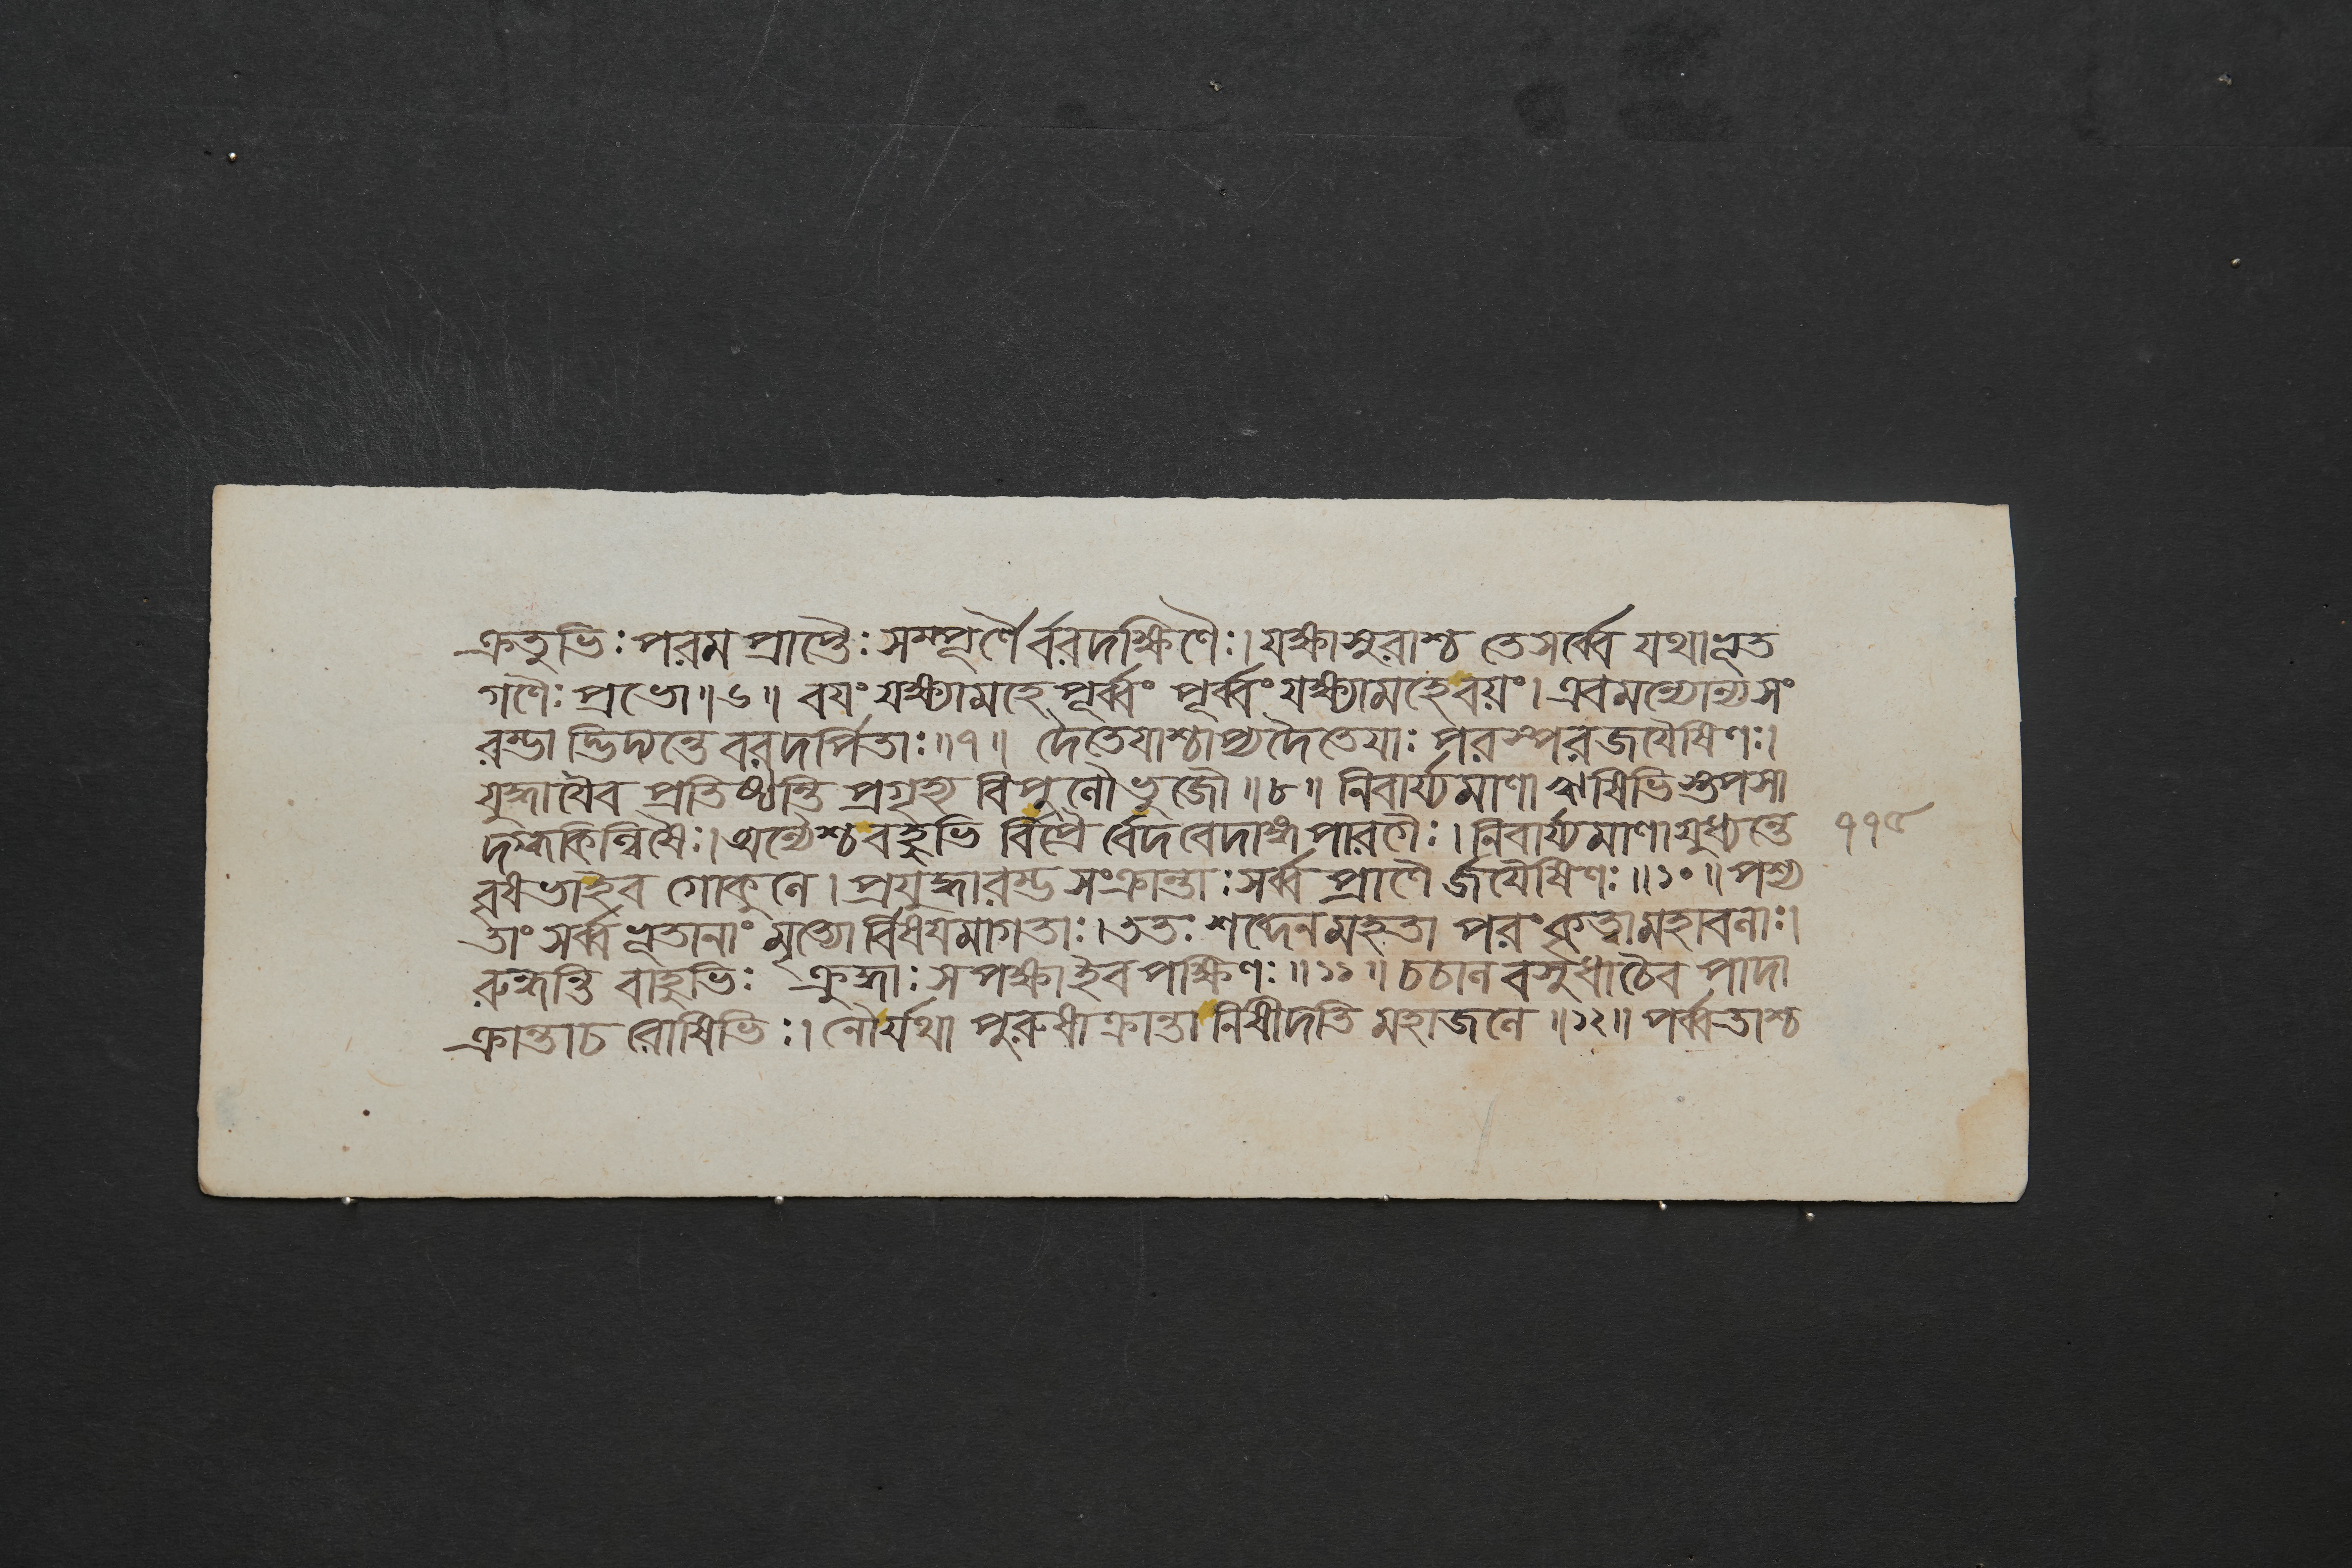 ক্রতুভিঃ পরমপ্রাপ্তৈঃ সম্পূর্ণৈর্বরদক্ষিণৈঃ। যক্ষাসুরাশ্চ তে সর্ব্বে যথাভূত
গণৈঃ প্রভো॥৬॥ বয়ং যক্ষ্যামহে পূর্ব্বং পূর্ব্বং যক্ষ্যামহে বয়ং। এবমন্যোন্যসং
রব্ধা দ্ভিদ্যন্তে বরদর্পিতাঃ॥৭॥ দৈতেয়াশ্চাপ্যদৈতেয়াঃ পরস্পরজয়ৈষিণঃ।
যুদ্ধায়ৈব প্রতিষ্ঠন্তি প্রগৃহ্য বিপুলৌ ভুজৌ॥৮॥ নিবার্য্যমাণা ঋষিভিস্তপসা
দগ্ধকিল্বিষৈঃ। অন্যৈশ্চ বহুভি র্বিপ্রৈ র্বেদবেদাঙ্গপারগৈঃ। নিবার্য্যমাণা যুধ্যন্তে
বৃষভাইব গোকুলে। প্রযুদ্ধারব্ধসংক্রান্তাঃ সর্ব্বপ্রাণৈ র্জয়ৈষিণঃ॥১০॥ পশ্য
তাং সর্ব্বভূতানাং মৃত্যোর্বিষয়মাগতাঃ। ততঃ শব্দেন মহতা পরং কৃত্বা মহাবলাঃ।
রুন্ধন্তি বাহুভিঃ ক্রুদ্ধাঃ সপক্ষাইব পক্ষিণঃ॥১১॥ চচাল বসুধাচৈব পাদা
ক্রান্তাচ রোষিভিঃ। নৌর্যথা পুরুষাক্রান্তা নিষীদতি মহাজলে॥১২॥ পর্ব্বতাশ্চ
১১৫